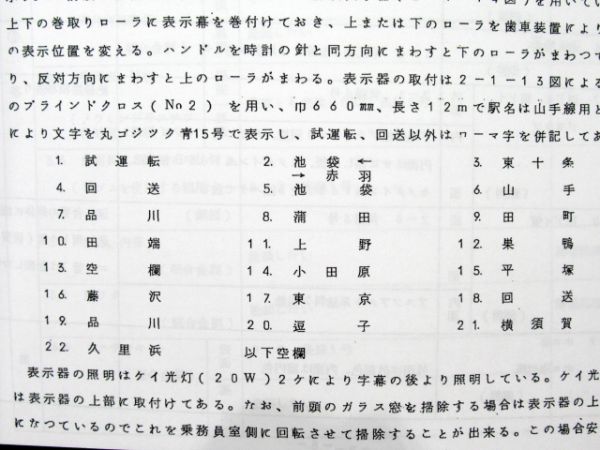 上下の巻取りローラに表示幕を巻付けておき、上または下のローラを歯車装置によ
の表示位置を変える。ハンドルを時計の針と同方向にまわすと下のローラがまわつ
り、反対方向にまわすと上のローラがまわる。表示器の取付は2-1-13図による
のブラインドクロス(No2) を用い、巾660㎜、長さ12mで駅名は山手線用と
により文字を丸ゴジツク青15号で表示し、試運転、回送以外はローマ字を併記してあ
1. 試運転 2. 池袋← 3. 東十条
→赤羽
4. 回送 5. 池袋 6. 山手
7. 品川 8. 蒲田 9. 田町
10. 田端 11. 上野 12. 巣鴨
13. 空欄 14. 小田原 15. 平塚
16. 藤沢 17. 東京 18. 回送
19. 品川 20. 逗子 21. 横須賀
22. 久里浜 以下空欄
表示器の照明はケイ光灯(20W)2ケにより字幕の後より照明している。ケイ光
は表示器の上部に取付けてある。なお、前頭のガラス窓を掃除する場合は表示器の上
になつているのでこれを乗務員室側に回転させて掃除することが出来る。この場合安